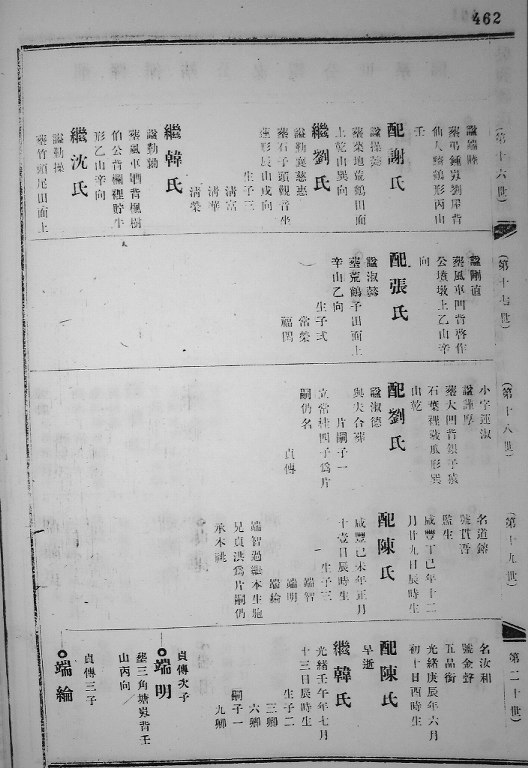 462
(第十六世)
諡端睦
仙人騎鶴形丙山
壬
配謝氏
上乾山巽向
繼劉氏
諡勤慈惠
葬石子頭觀音坐
蓮形辰山戌向
生子三
清富
清華
清榮
繼韓氏
諡勤勤
葬風車凹背楓樹
形乙山辛向
繼沈氏
諡勤操
葬竹頭尾田面上
(第十七世)
諡剛直
葬風車凹背啓作
公墳墩上乙山辛
向
配張氏
諡淑懿
葬荒鶴子田面上
辛山乙向
生子弍
常榮
(第十八世)
小字蓮淑
諡謹厚
山乾
配劉氏
諡淑德
與夫合葬
片嗣子一
立常桂四子爲片
嗣仍名
貞傳
(第十九世)
名道鎔
號貫吾
監生
咸豐丁巳年十二
月廿九日辰時生
配陳氏
咸豐己未年正月
十壹日辰時生
生子三
端智
端明
端綸
端智過繼本生胞
兄貞洪爲片嗣仍
承本祧
(第二十世)
名汝和
號金聲
五品銜
光緒庚辰年六月
初十日酉時生
配陳氏
早逝
繼韓氏
光緒壬午年七月
十三日辰時生
生子二
三卿
六卿
嗣子一
九卿
端明
貞傳次子
葬三角塘㘭背壬
山丙向
端綸
貞傳三子